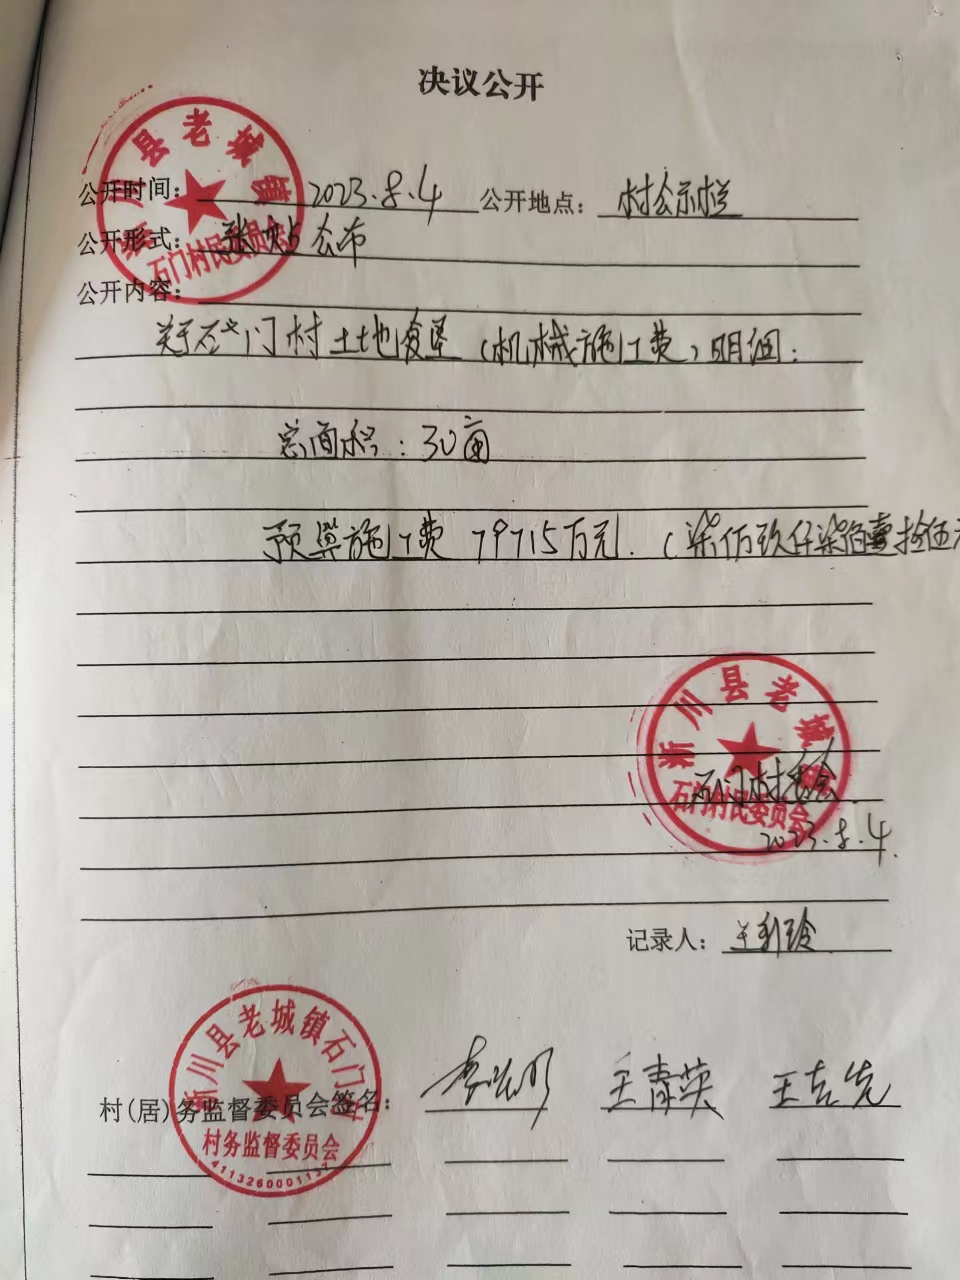 决议公开
公开时间：2023.8.4 公开地点：村公示栏
公开形式：张帖公布
公开内容：
关于石门村土地复垦（机械施工费）明细：
总面积：30亩
预算施工费 79715万元．（柒佰玖仟柒佰壹拾伍元
石门村委会
2023.8.4.
记录人：王利玲
村(居)务监督委员会签名： 王青英 王吉先
淅川县老城镇
石门村民委员会
淅川县老城镇
石门村民委员会
淅川县老城镇石门村
村务监督委员会